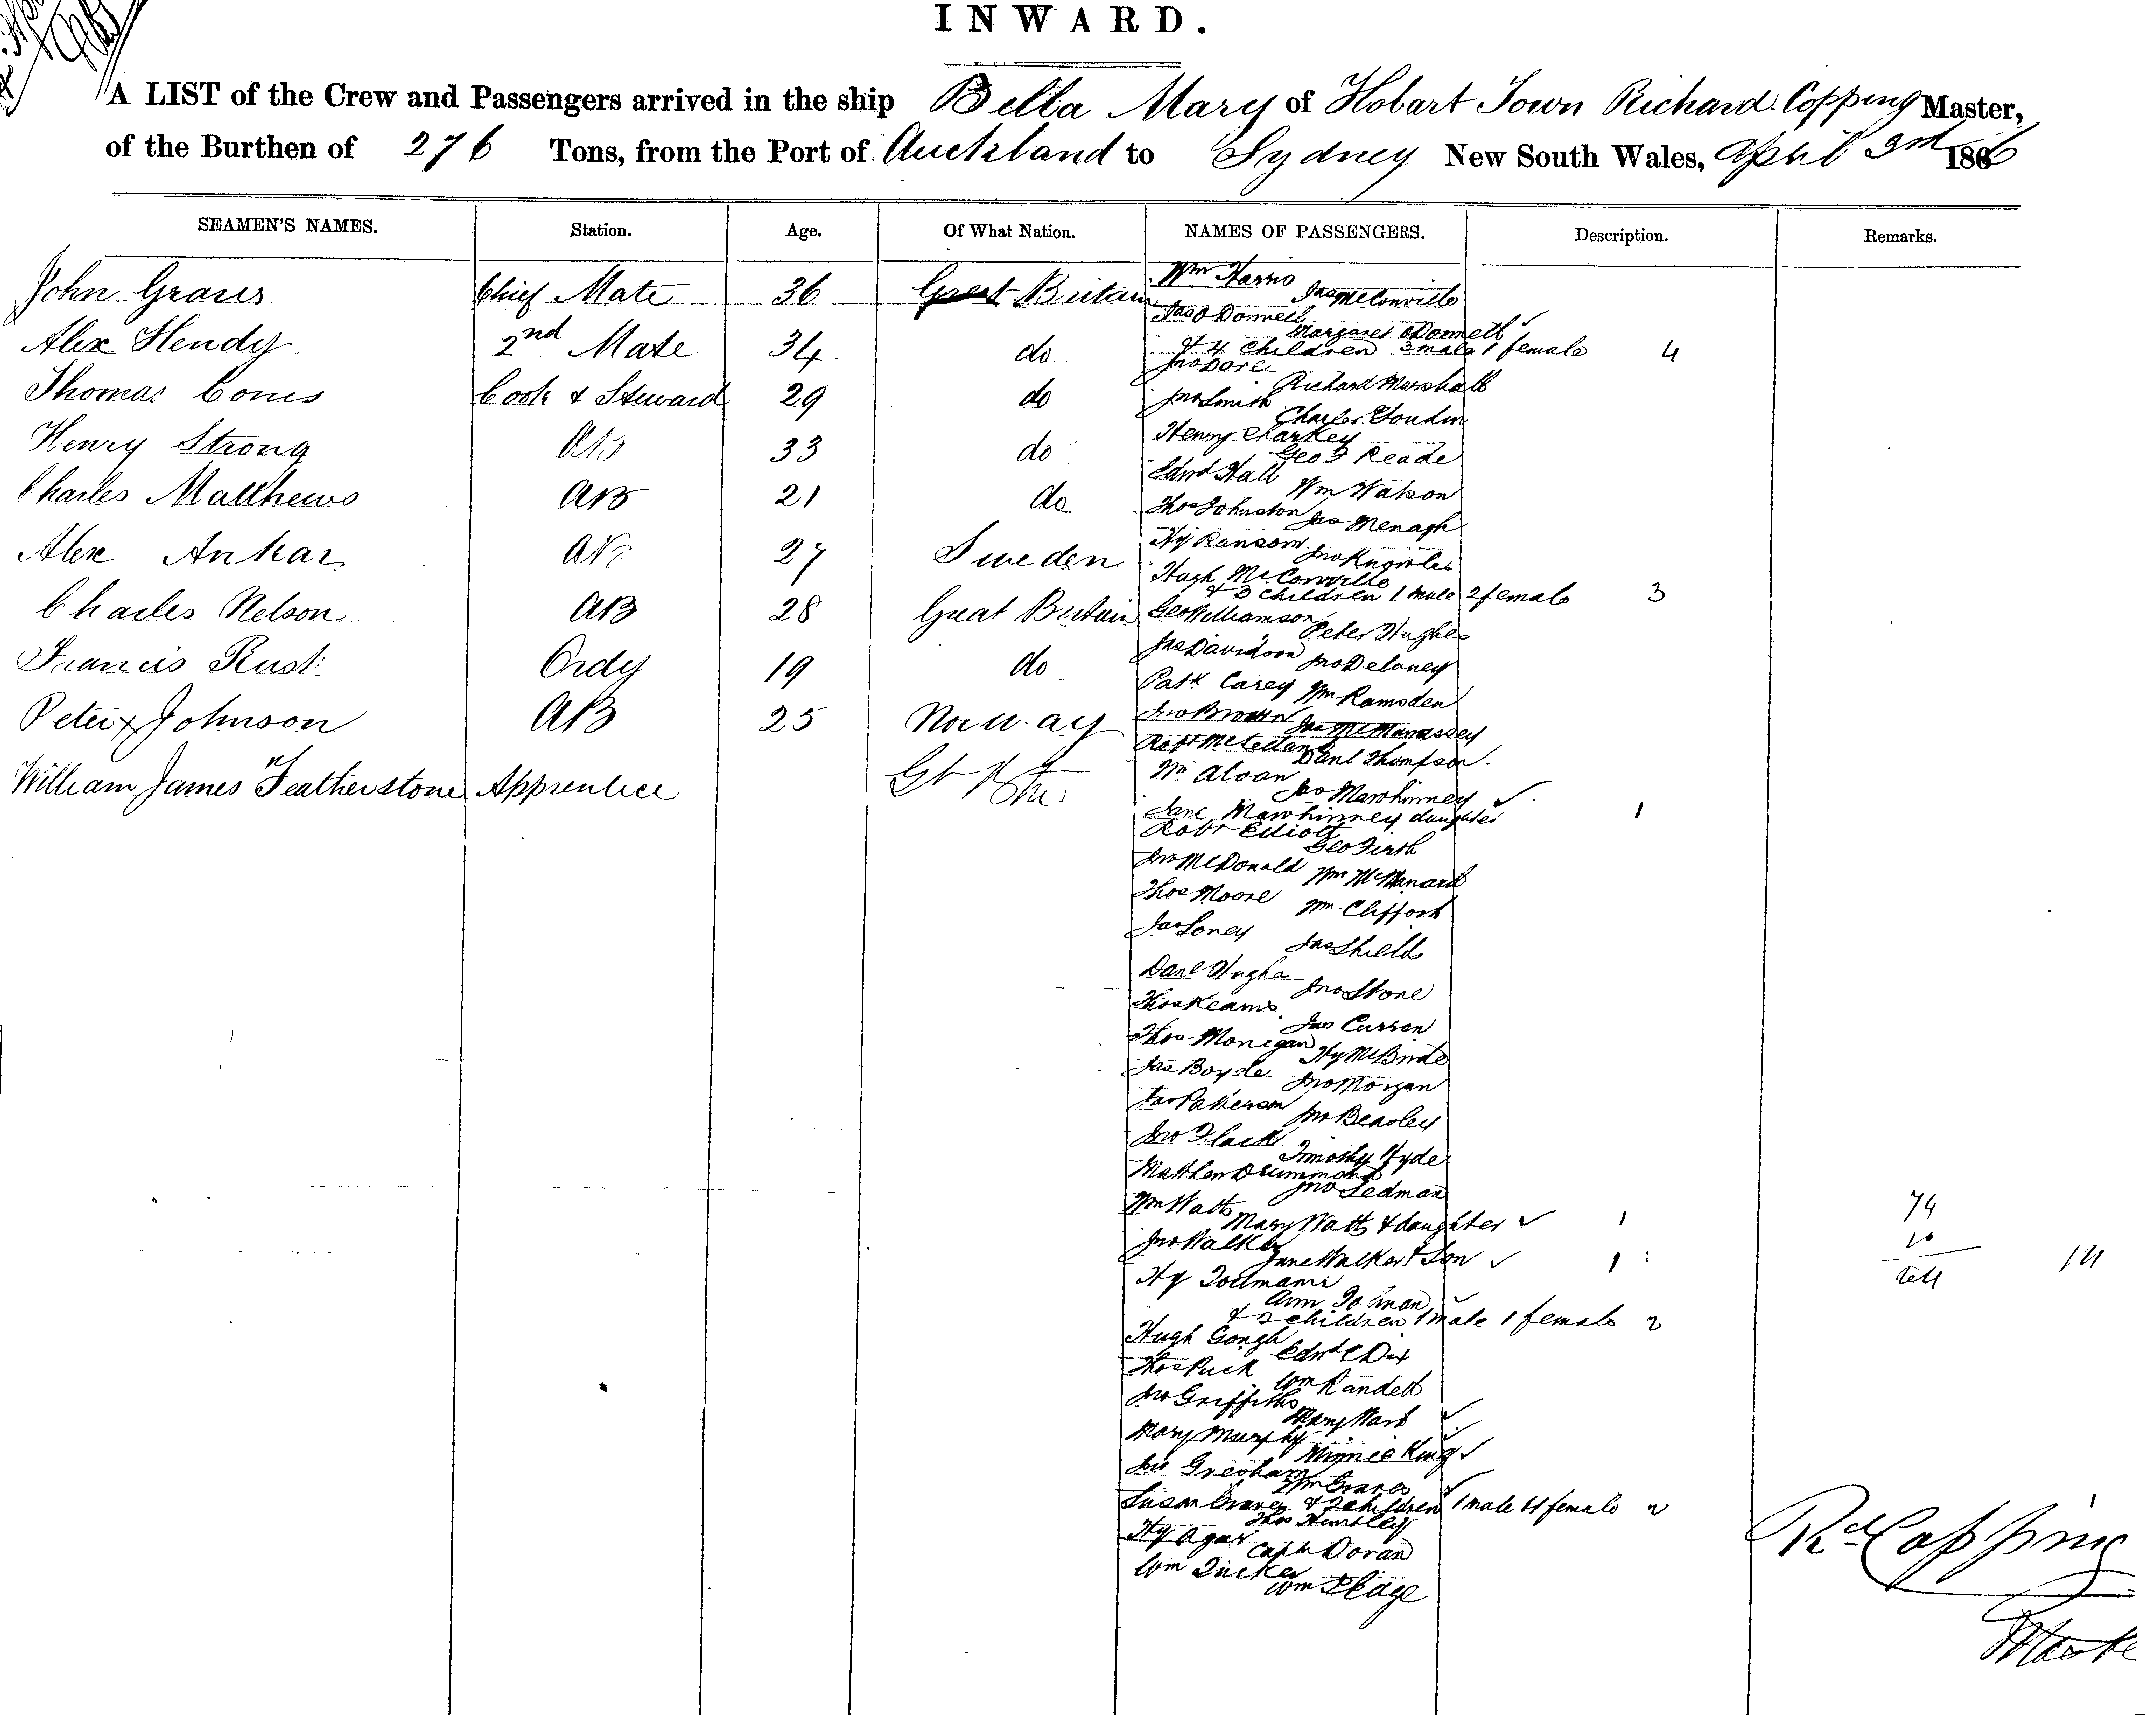 INWARD.
A LIST of the Crew and Passengers arrived in the ship Bella Mary of Hobart Town Richard Copping Master,
of the Burthen of 276 Tons, from the Port of Auckland to Sydney New South Wales, April 3rd 1866
SEAMEN'S NAMES. Station. Age. Of What Nation. NAMES OF PASSENGERS. Description. Remarks.
John Graves Chief Mate 36 Great Britain
Alex Hendy 2nd Mate 34 do
Thomas Cones Cook & Steward 29 do
Henry Strong AB 33 do
Charles Matthews AB 21 do
Alex Ankar AB 27 Sweden
Charles Nelson AB 28 Great Britain
Francis Rust Ordy 19 do
Peter x Johnson AB 25 Norway
William James Featherstone Apprentice
Wm Harris
Jas McConville
Jas O Donnell
Margaret O Donnell
& 4 Children 3 male 1 female 4
Jno Dore
Richard Marshall
Jno Smith
Charles
Henry Charkey
Geo Reade
Edwd Hall
Wm Watson
Thos Johnston
Jas Menagh
Hy Ransom
Jno Knowles
Hugh McConville
& 3 children 1 male 2 female 3
Geo Williamson
Peter Hughes
Jas Davidson
Jno Deloney
Patk Carey
Wm Ramsden
Jno Brown
Jas McManassey
Robt McLelland
Danl Thompson
Wm Aloan
Jas Mawhinney
Jane Mawhinney daughter 1
Robt Elliott
Geo Firth
Jno McDonald
Wm McManard
Thos Moore
Wm Clifford
Jas Loney
Jas Shield
Danl Hughes
Jno Stone
Thos Keams
Jas Curren
Thos Monigan
Hy McBride
Jas Boyde
Jno Morgan
Jas Paterson
Jno Beasley
Jno Flack
Timothy Hyde
Mathew Drummond
Jno Sedman
Wm Watts
Mary Watts & daughter 1
Jno Walker
Jane Walker & Son 1
Hy Tollmann
Ann
& 2 children 1 male 1 female 2
Hugh Gough
Edwd C Dix
Thos Puck
Wm Randell
Jno Griffiths
Mary Ward
Mary Murphy
Minnie King
Jas Gresham
Wm Graves
Susan Graves & 2 children 1 male 1 female 2
Thos Huntley
Hy Agar
Captn Doran
Wm Tucker
Wm Page
74
10
14
Rd Copping
Master